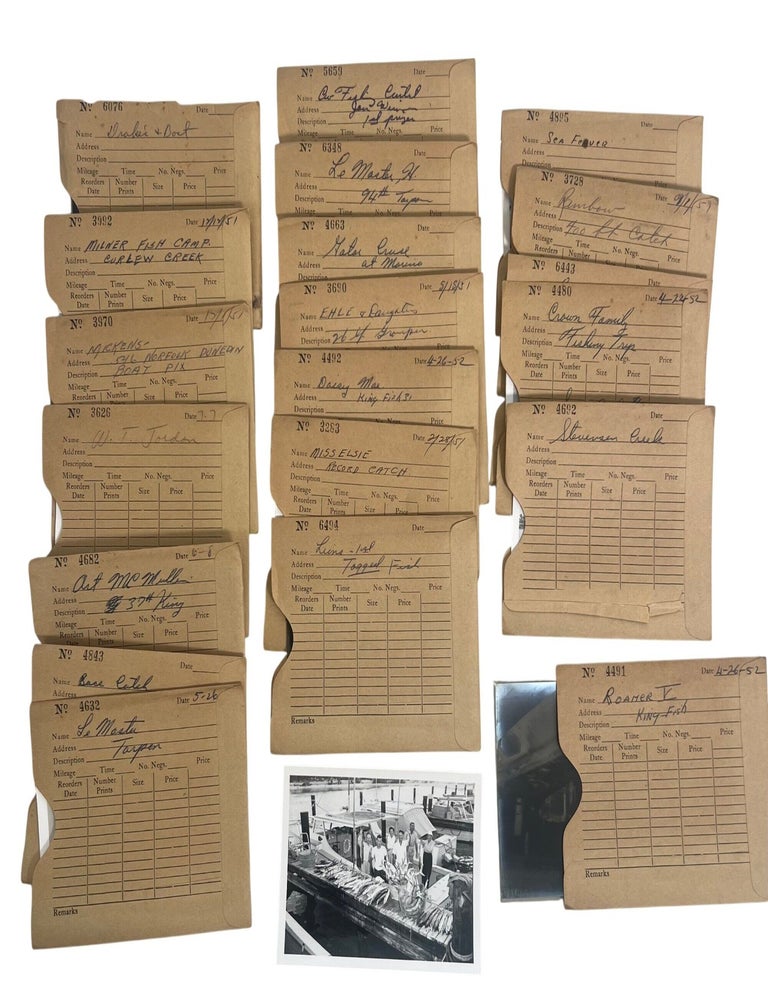 Nº 6076 Date
Name Drake's & Boat
Address
Description
Mileage Time No. Negs. Price
Reorders Number Size Price
Date Prints
Nº 3992 Date 12/17/51
Name MILNER FISH CAMP.
Address CURLEW CREEK
Description
Mileage Time No. Negs. Price
Reorders Number Size Price
Date Prints
Nº 3970 Date
Name
Address NORFOLK DUNEDIN
Description BOAT PIX
Mileage Time No. Negs. Price
Reorders Number Size Price
Nº 3626 Date 7.7
Name W. T. Jordan
Address
Description
Mileage Time No. Negs. Price
Reorders Number Size Price
Date Prints
Nº 4682 Date 6-6
Name Art McMullen
Address 37th King
Description
Mileage Time No. Negs. Price
Reorders Number Size Price
Date Prints
Nº 4843 Date
Name Base Catch
Address
Nº 4632 Date 5-26
Name Le Master
Address Tarpon
Description
Mileage Time No. Negs. Price
Reorders Number Size Price
Date Prints
Remarks
Nº 5659 Date
Name
Address
Description 1st prizes
Mileage Time No. Negs. Price
Nº 6348 Date
Name Le Master, H
Address
Description 94th Tarpon
Mileage Time No. Negs. Price
Nº 4663 Date
Name Gator Cruse
Address at Marina
Description
Mileage Time No. Negs. Price
Nº 3690 Date 8/18/51
Name EHLE & Daughter
Address
Description Grouper
Mileage Time No. Negs. Price
Nº 4492 Date 4-26-52
Name Dacey Mae
Address King Fish
Description
Mileage Time No. Negs. Price
Nº 3263 Date 2/28/51
Name MISS ELSIE
Address RECORD CATCH.
Description
Mileage Time No. Negs. Price
Nº 6494 Date
Name
Address Tagged Fish
Description
Mileage Time No. Negs. Price
Reorders Number Size Price
Date Prints
Remarks
Nº 4895 Date
Name SEA FEVER
Address
Description
Mileage Time No. Negs. Price
Nº 3728
Name Rainbow
Address 400 lb Catch
Description
Mileage Time No. Negs. Price
Nº 6443
Nº 4480 Date 4-24-52
Name Crown Family
Address Fishing Trip
Description
Mileage Time No. Negs. Price
Reorders Number Size Price
Date Prints
Nº 4692 Date
Name Stevenson Creek
Address
Description
Mileage Time No. Negs. Price
Reorders Number Size Price
Date Prints
Nº 4491 Date 4-26-52
Name ROAMER V
Address KING-FISH
Description
Mileage Time No. Negs. Price
Reorders Number Size Price
Date Prints
Remarks